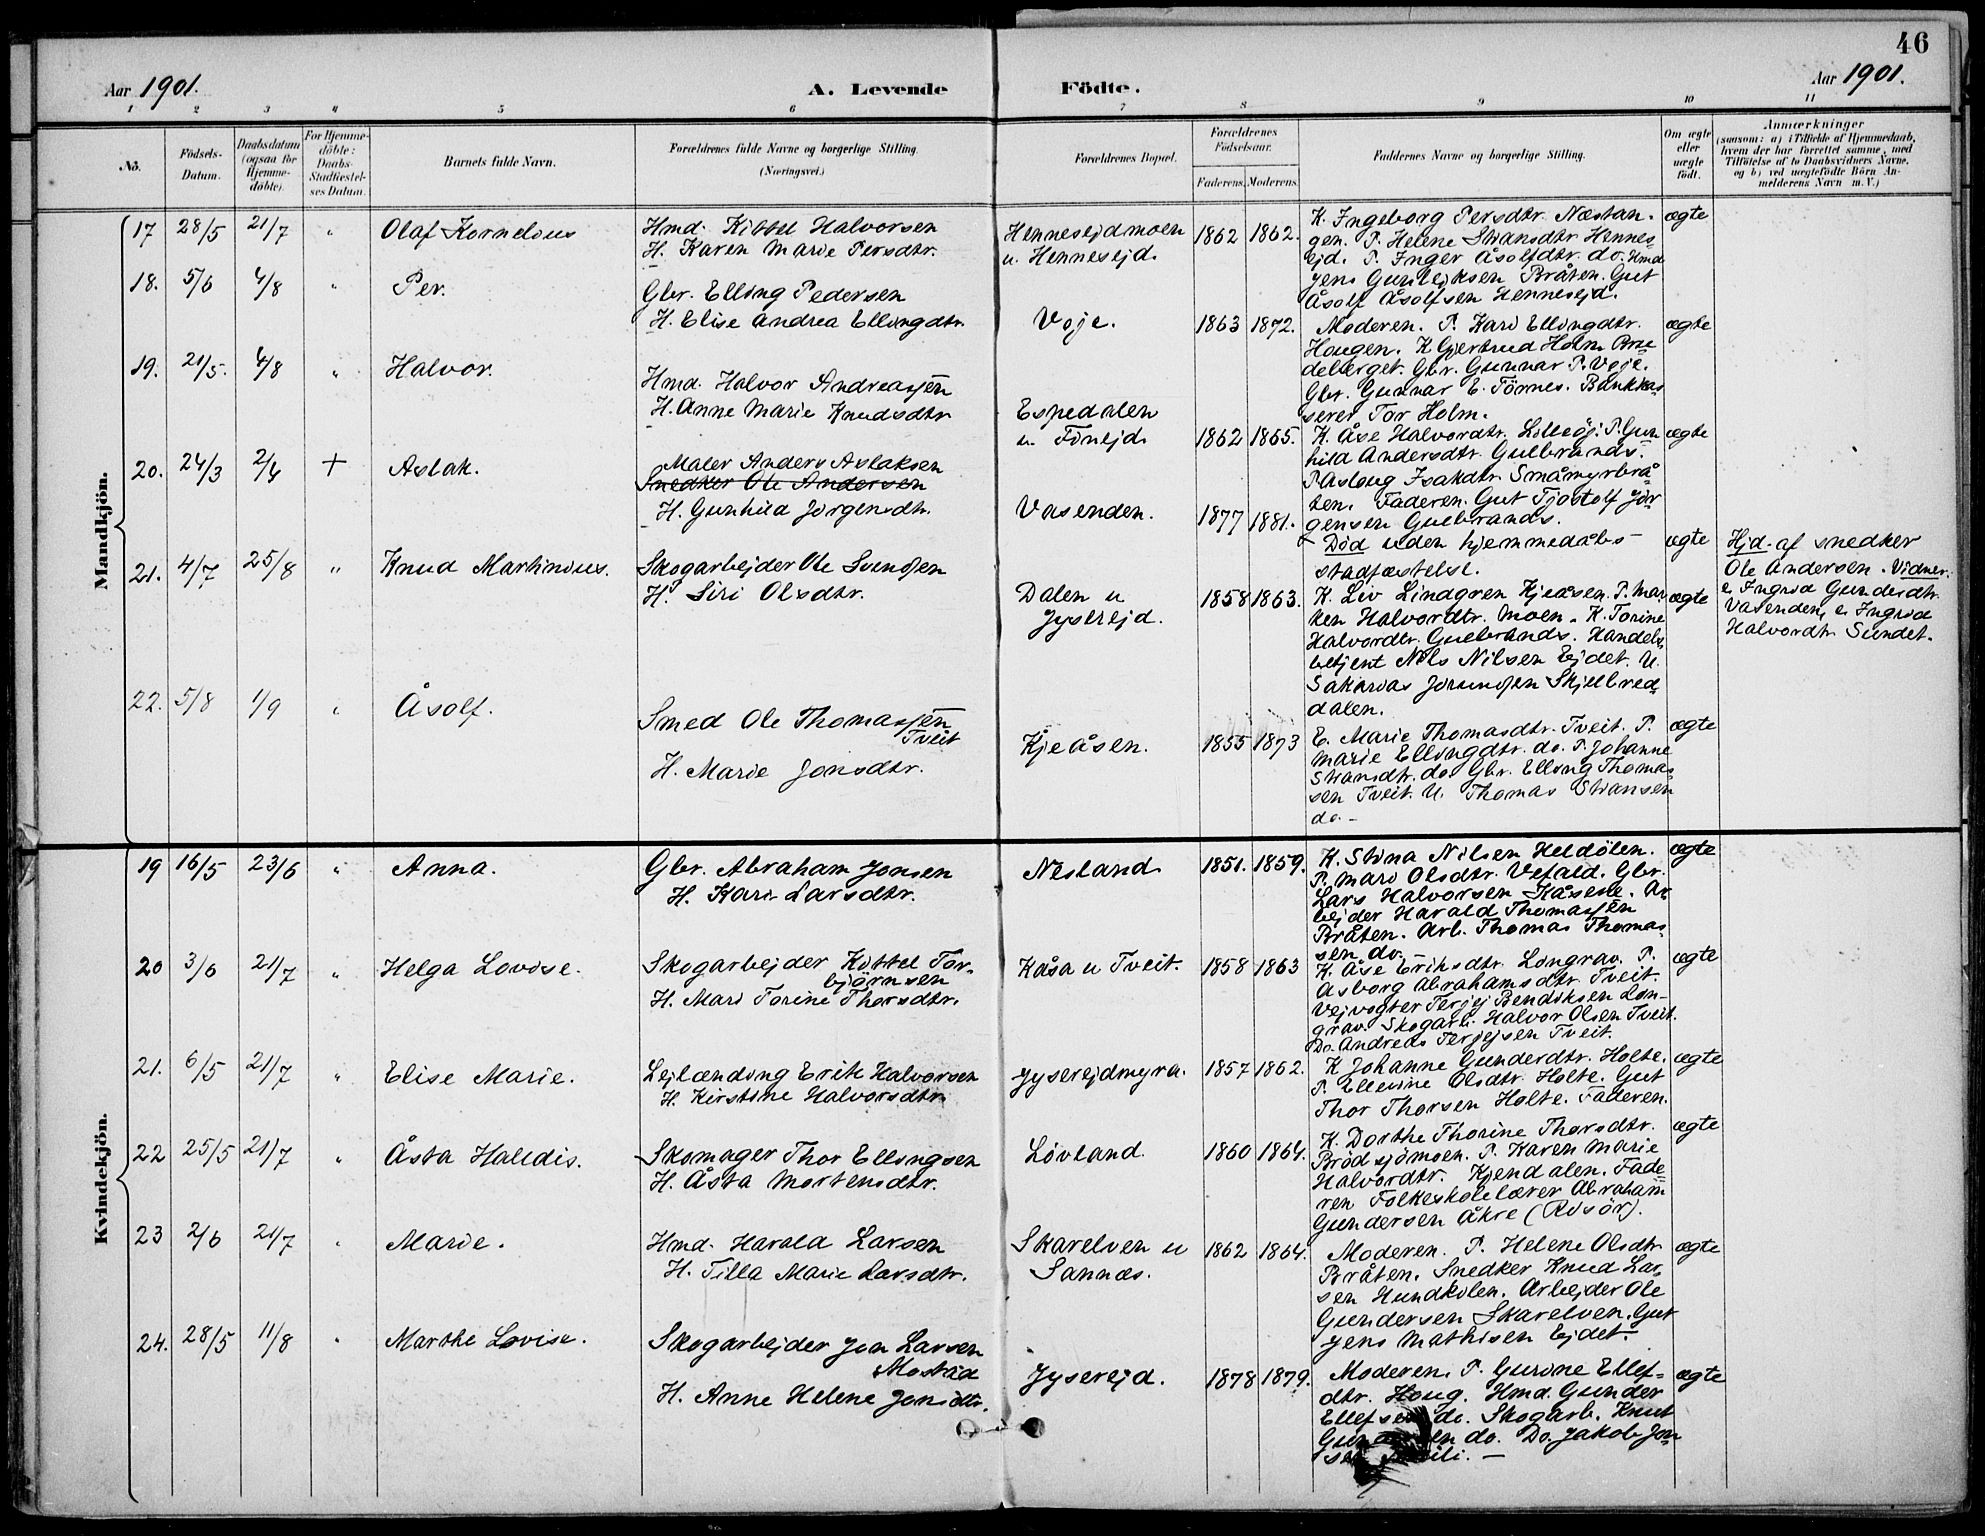 46
Aar 1901.
A. Levende Födte.
Aar 1901.
1 2 3 4 5 6 7 8 9 10 11
No.
Födsels-
Datum.
Daabsdatum
(ogsaa for
Hjemme-
döbte).
For Hjemme-
döbte:
Daabs-
Stadfæstel-
ses Datum.
Barnets fulde Navn.
Forældrenes fulde Navne og borgerlige Stilling.
(Næringsvei.)
Forældrenes Bopæl.
Forældrenes
Födselsaar.
Faderens. Moderens.
Faddernes Navne og borgerlige Stilling.
Om ægte
eller
uægte
födt.
Anmærkninger
(saasom: a) i Tilfælde af Hjemmedaab,
hvem der har forrettet samme, med
Tilföielse af to Daabsvidners Navne.
og b) ved uægtefödte Börn An-
melderens Navn m. V.)
Mandkjön.
17 28/5 21/7 " Olaf Kornelius
Hmd. Kittel Halvorsen
H. Karen Marie Persdtr.
Hennesejdmoen
u. Hennesejd.
1862 1862.
K. Ingeborg Persdtr. Næstan-
gen. P. Helene Stiansdtr Hennes-
ejd. P. Inger Åsolfdtr. do. Hmd
Jens Gunlejksen Bråten. Gut
Åsolf Åsolfsen Hennesejd.
ægte
18. 5/6 4/8 " Per.
Gbr. Elling Pedersen
H. Elise Andrea Ellingdtr.
Voje.
1863 1872.
Moderen. P. Kari Ellingdtr.
Haugen. K Gjertrud Holm Bru-
deberget. Gbr. Gunnar P. Voje.
Gbr. Gunnar E. Törnes. Bankkas-
serer Tor Holm.
ægte
19. 21/5. 4/8 " Halvor.
Hmd. Halvor Andreassen
H. Anne Marie Knudsdtr
Espedalen
u. Finejd.
1862 1865.
K. Åse Halvordtr. Lilleöj. P. Gun
hild Andersdtr. Gulbrands.
P Aslaug Isakdtr Småmyrbrå-
ten. Faderen. Gut Tjostolf Jör-
gensen Gulbrands.
ægte
20. 24/3 2/4 + Aslak.
Maler Anders Aslaksen
Snedker Ole Andersen
H. Gunhild Jörgensdtr.
Vasenden.
1877 1881.
- Död uden hjemmedåbs-
stadfæstelse.
ægte
Hjd. af snedker
Ole Andersen. Vidner:
e. Ingrid Gundersdtr.
Vasenden, e. Ingrid
Halvordtr. Sundet.
21. 4/7 25/8 " Knud Martinius.
Skogarbejder Ole Svendsen
H. Siri Olsdtr.
Dalen u
Jyserejd.
1858 1863.
K. Liv Lindgren Kjeåsen. P. Mar-
ken Halvordtr. Moen. K. Torine
Halvordtr. Gulbrands. Handels-
betjent Nils Nilsen Ejdet. U.
Sakarias Jörundsen Skjelbred-
dalen.
ægte
22. 5/8 1/9 " Åsolf.
Smed Ole Thomassen
Tveit
H. Marie Jonsdtr.
Kjeåsen.
1855 1873
E. Marie Thomasdtr. Tveit. P.
Marie Ellingdtr. do. P. Johanne
Stiansdtr. do. Gbr. Elling Thomas-
sen Tveit. U. Thomas Stiansen
do. -
ægte
Kvindekjön.
19 16/5 23/6 " Anna.
Gbr. Abraham Jonsen
H. Kari Larsdtr.
Nesland
1851. 1859.
K. Stina Nilsen Heldölen.
P. Mari Olsdtr. Vefald. Gbr.
Lars Halvorsen Kåsene. Ar-
bejder Harald Thomassen
Bråten. Arb. Thomas Thomas-
sen do.
ægte
20 3/6 21/7 " Helga Lovise.
Skogarbejder Kittel Tor-
björnsen
H. Mari Torine Thorsdtr.
Kåsa u Tveit.
1858 1863
K. Åse Eriksdtr. Longrav. P.
Åsborg Abrahamsdtr. Tveit.
Vejvogter Terjej Bendiksen Lon-
grav. Skogarb. Halvor Olsen Tveit.
Do. Andreas Terjejsen Tveit.
ægte
21. 6/5 21/7 " Elise Marie.
Lejlænding Erik Halvorsen
H. Kirstine Halvorsdtr.
Jyserejdmyra.
1857 1862.
K Johanne Gunderdtr. Holte.
P. Ellevine Olsdtr. Holte. Gut
Thor Thorsen Holte. Faderen.
ægte
22 25/5 21/7 " Åsta Halldis.
Skomager Thor Ellingsen
H. Åsta Mortensdtr.
Lövland.
1860 1864.
K. Dorthe Thorine Thorsdtr.
Brödsjömoen. P. Karen Marie
Halvordtr. Kjendalen. Fade-
ren Folkeskolelærer Abraham
Gundersen Åkre (Risör).
ægte
23 2/6 21/7 " Marie.
Hmd. Harald Larsen
H. Tilla Marie Larsdtr.
Skarelven u
Sannes.
1862 1864.
Moderen. P. Helene Olsdtr
Bråten. Snedker Knud Lar-
sen Hundkilen. Arbejder Ole
Gundersen Skarelven. Gut
Jens Mathisen Ejdet.
ægte
24. 28/5 11/8 " Marthe Lovise.
Skogarbejder Jon Larsen
Mostad
H. Anne Helene Jonsdtr.
Jyserejd.
1878 1879.
Moderen. P. Gurine Ellef-
dtr. Haug. Hmd. Gunder
Ellefsen do. Skogarb. Knut
do. Do. Jakob Jon-
ægte